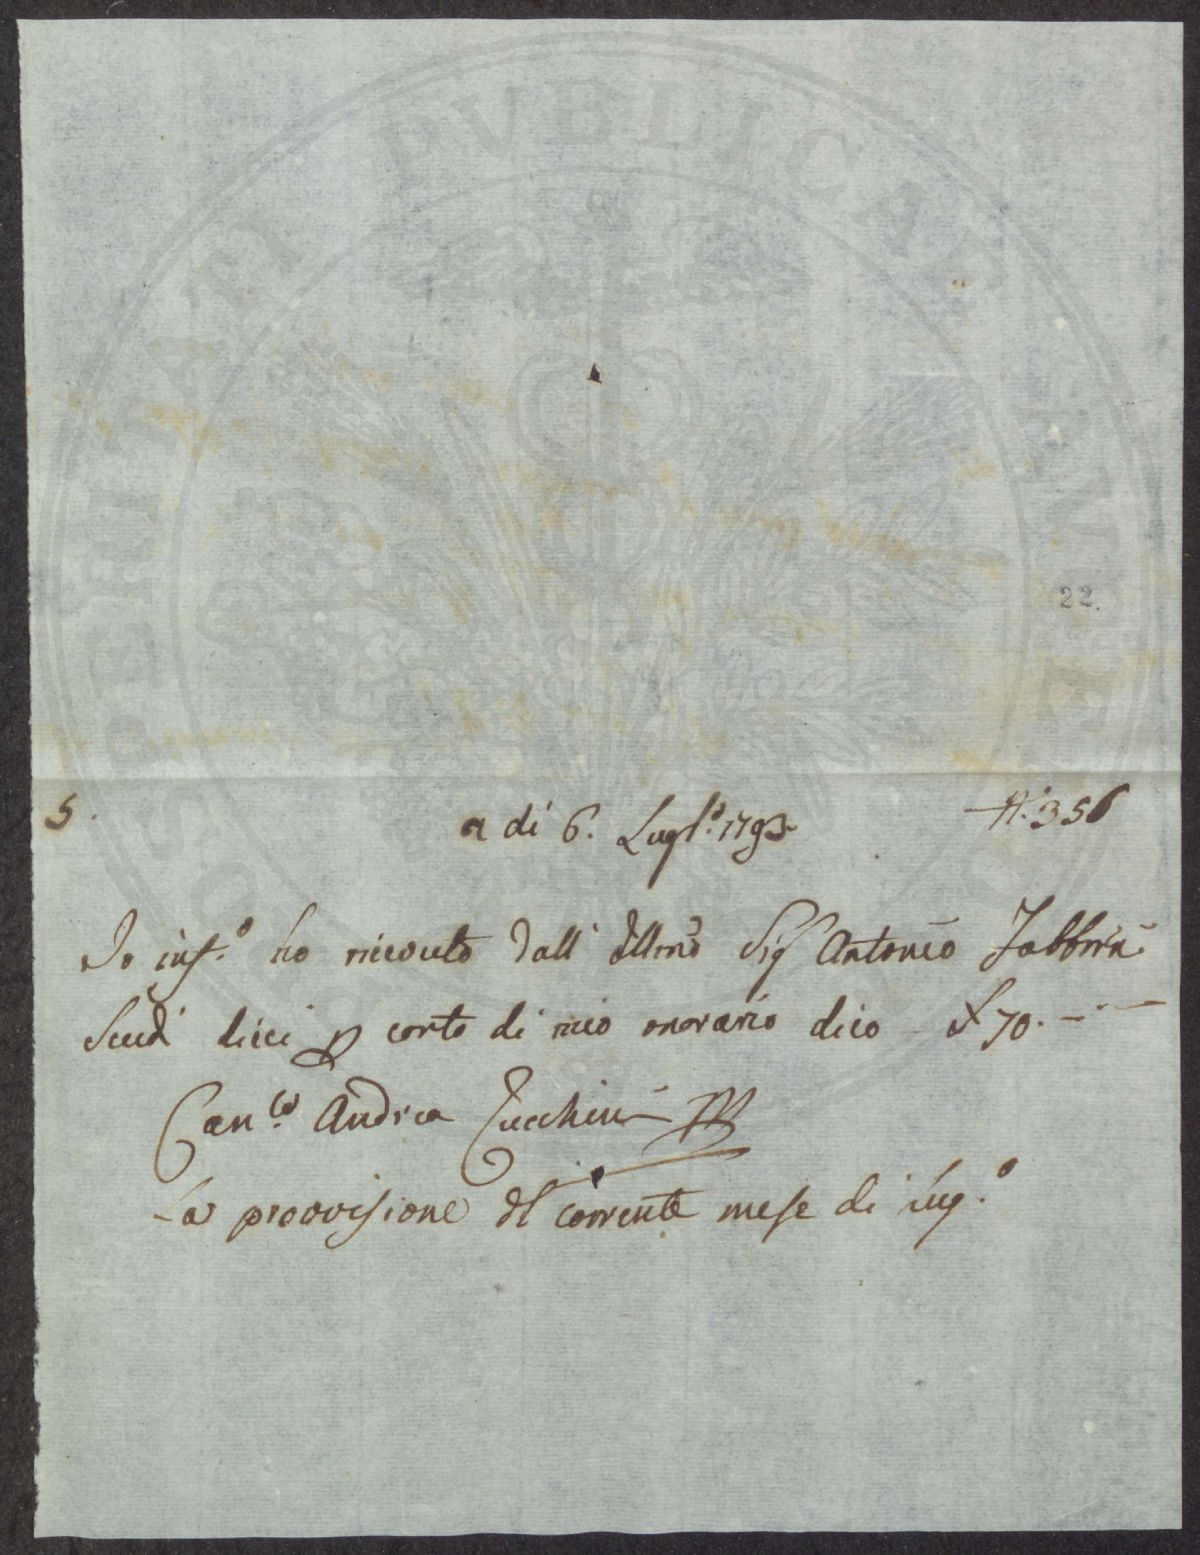 PROSPERITATI PVBLICAE AVGE
22.
5.
a di 6. Lugl.º 1793.
N.º 356
Io inf.º ho riceuto dall' Illmo Sig Antonio Fabbrini
Scudi dieci p conto di mio onorario dico £ 70. - . -
Can.co Andrea Zucchini
La provvisione del corrente mese di Lug.º